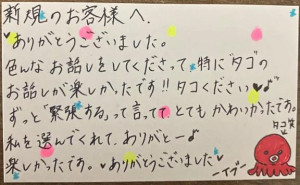 新規のお客様へ、
ありがとうございました。
色んなお話しをしてくださって、特に「タコ」の
お話しが楽しかったです!!タコください♥♪
ずっと「緊張する」って言っててとてもかわいかったです。
私を選んでくれて、ありがとー♪
楽しかったです。♥ありがとうございました♥